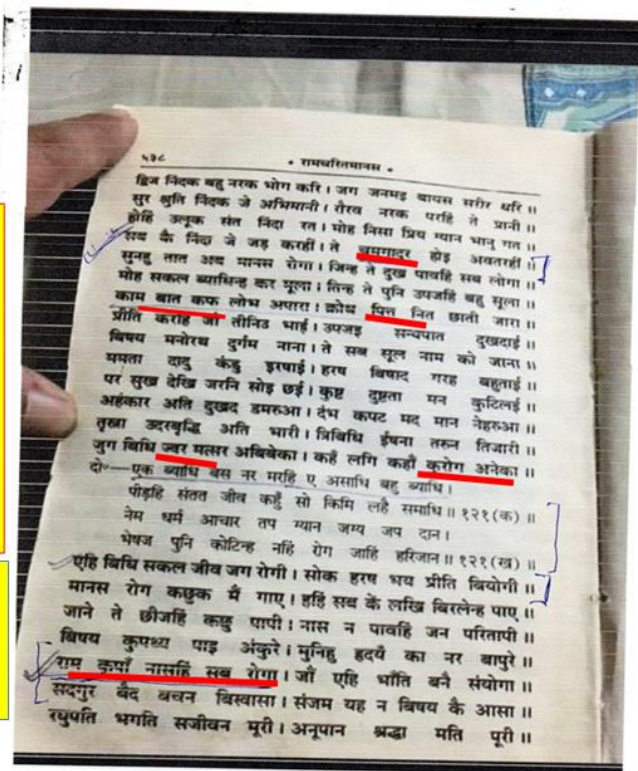 ५३८
* रामचरितमानस *
द्विज निंदक बहु नरक भोग करि । जग जनमइ बायस सरीर धरि ॥
सुर श्रुति निंदक जे अभिमानी । रौरव नरक परहिं ते प्रानी ॥
होहिं उलूक संत निंदा रत । मोह निसा प्रिय ग्यान भानु गत ॥
सब कै निंदा जे जड़ करहीं । ते चमगादुर होइ अवतरहीं ॥
सुनहु तात अब मानस रोगा । जिन्ह ते दुख पावहिं सब लोगा ॥
मोह सकल ब्याधिन्ह कर मूला । तिन्ह ते पुनि उपजहिं बहु सूला ॥
काम बात कफ लोभ अपारा । क्रोध पित्त नित छाती जारा ॥
प्रीति करहिं जौं तीनिउ भाई । उपजइ सन्यपात दुखदाई ॥
बिषय मनोरथ दुर्गम नाना । ते सब सूल नाम को जाना ॥
ममता दादु कंडु इरषाई । हरष बिषाद गरह बहुताई ॥
पर सुख देखि जरनि सोइ छई । कुष्ट दुष्टता मन कुटिलई ॥
अहंकार अति दुखद डमरुआ । दंभ कपट मद मान नेहरुआ ॥
तृस्ना उदरबृद्धि अति भारी । त्रिबिधि ईषना तरुन तिजारी ॥
जुग बिधि ज्वर मत्सर अबिबेका । कहँ लगि कहौं कुरोग अनेका ॥
दो०—एक ब्याधि बस नर मरहिं ए असाधि बहु ब्याधि ।
पीड़हिं संतत जीव कहुँ सो किमि लहै समाधि ॥ १२१(क) ॥
नेम धर्म आचार तप ग्यान जग्य जप दान ।
भेषज पुनि कोटिन्ह नहिं रोग जाहिं हरिजान ॥ १२१(ख) ॥
एहि बिधि सकल जीव जग रोगी । सोक हरष भय प्रीति बियोगी ॥
मानस रोग कछुक मैं गाए । हहिं सब कें लखि बिरलेन्ह पाए ॥
जाने ते छीजहिं कछु पापी । नास न पावहिं जन परितापी ॥
बिषय कुपथ्य पाइ अंकुरे । मुनिहु हृदयँ का नर बापुरे ॥
राम कृपाँ नासहिं सब रोगा । जौं एहि भाँति बनै संयोगा ॥
सदगुर बैद बचन बिस्वासा । संजम यह न बिषय कै आसा ॥
रघुपति भगति सजीवन मूरी । अनूपान श्रद्धा मति पूरी ॥